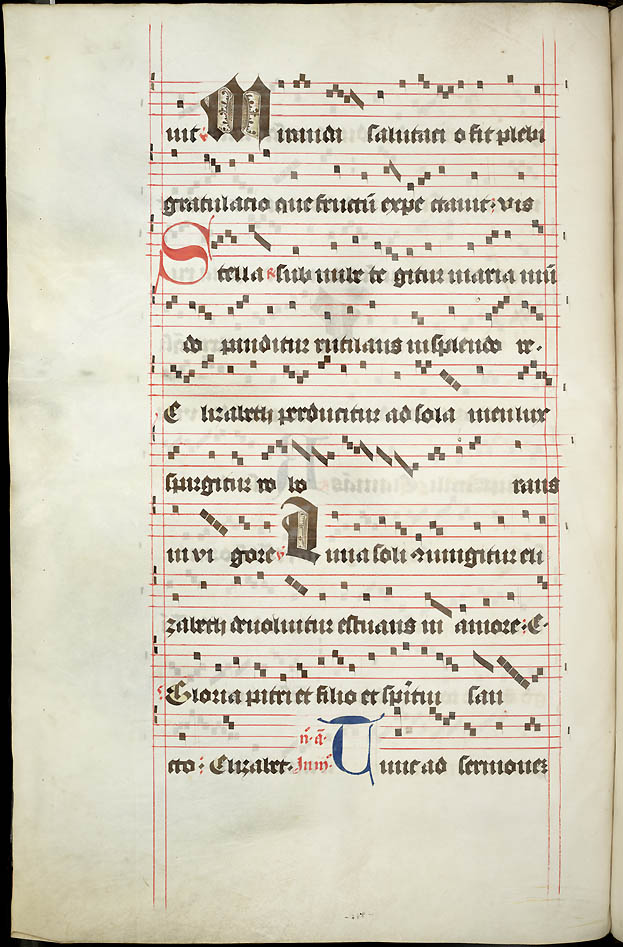 uit: Mirandi salutari o sit plebi
gratulatio que fructū expe ctauit: vis
Stella ℟ sub nube te gitur maria mū
do panditur rutilans in splendo re.
Elizabeth perducitur ad sola men luxe
spurgitur ro lo rans
in vi gore: ℣ Luna soli coniungitur eli
zabeth deuoluitur estuans in amore: E.
Gloria patri et filio et sp̄itui san
cto: Elizabet. In iij. n̄. a. Tunc ad sermones